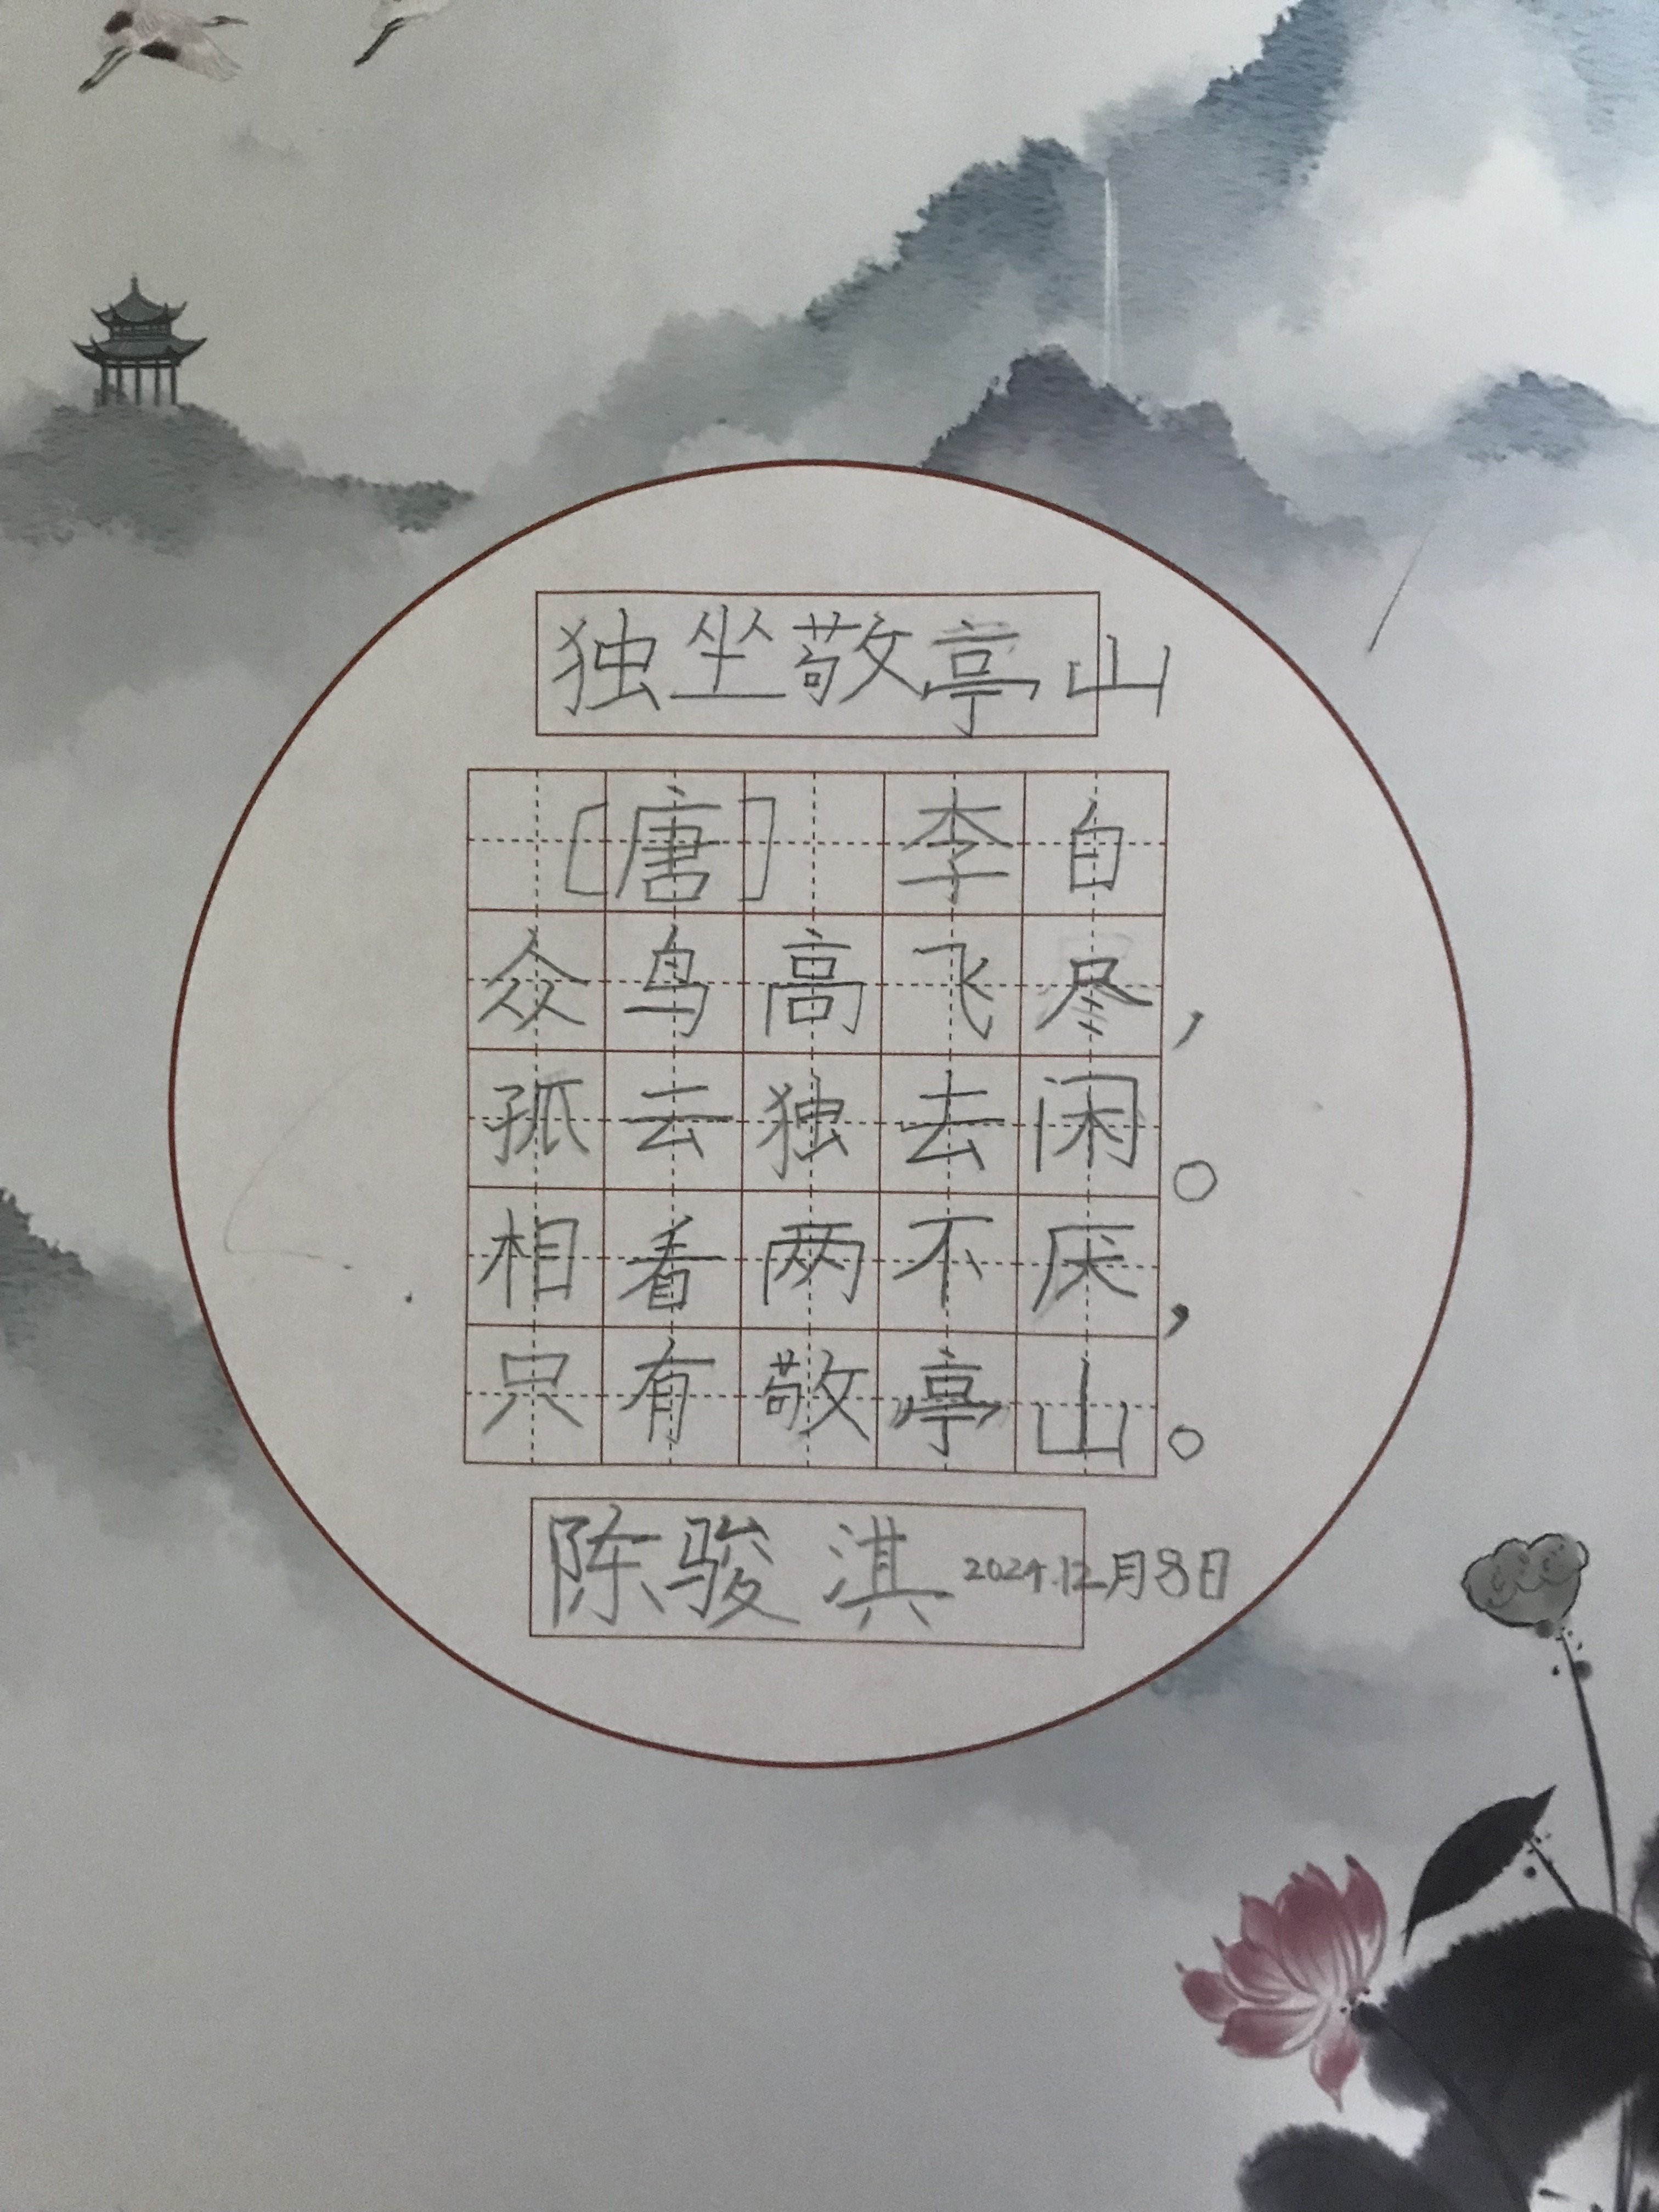 独坐敬亭山
[唐] 李白
众鸟高飞尽，
孤云独去闲。
相看两不厌，
只有敬亭山。
陈骏淇 2024.12月8日